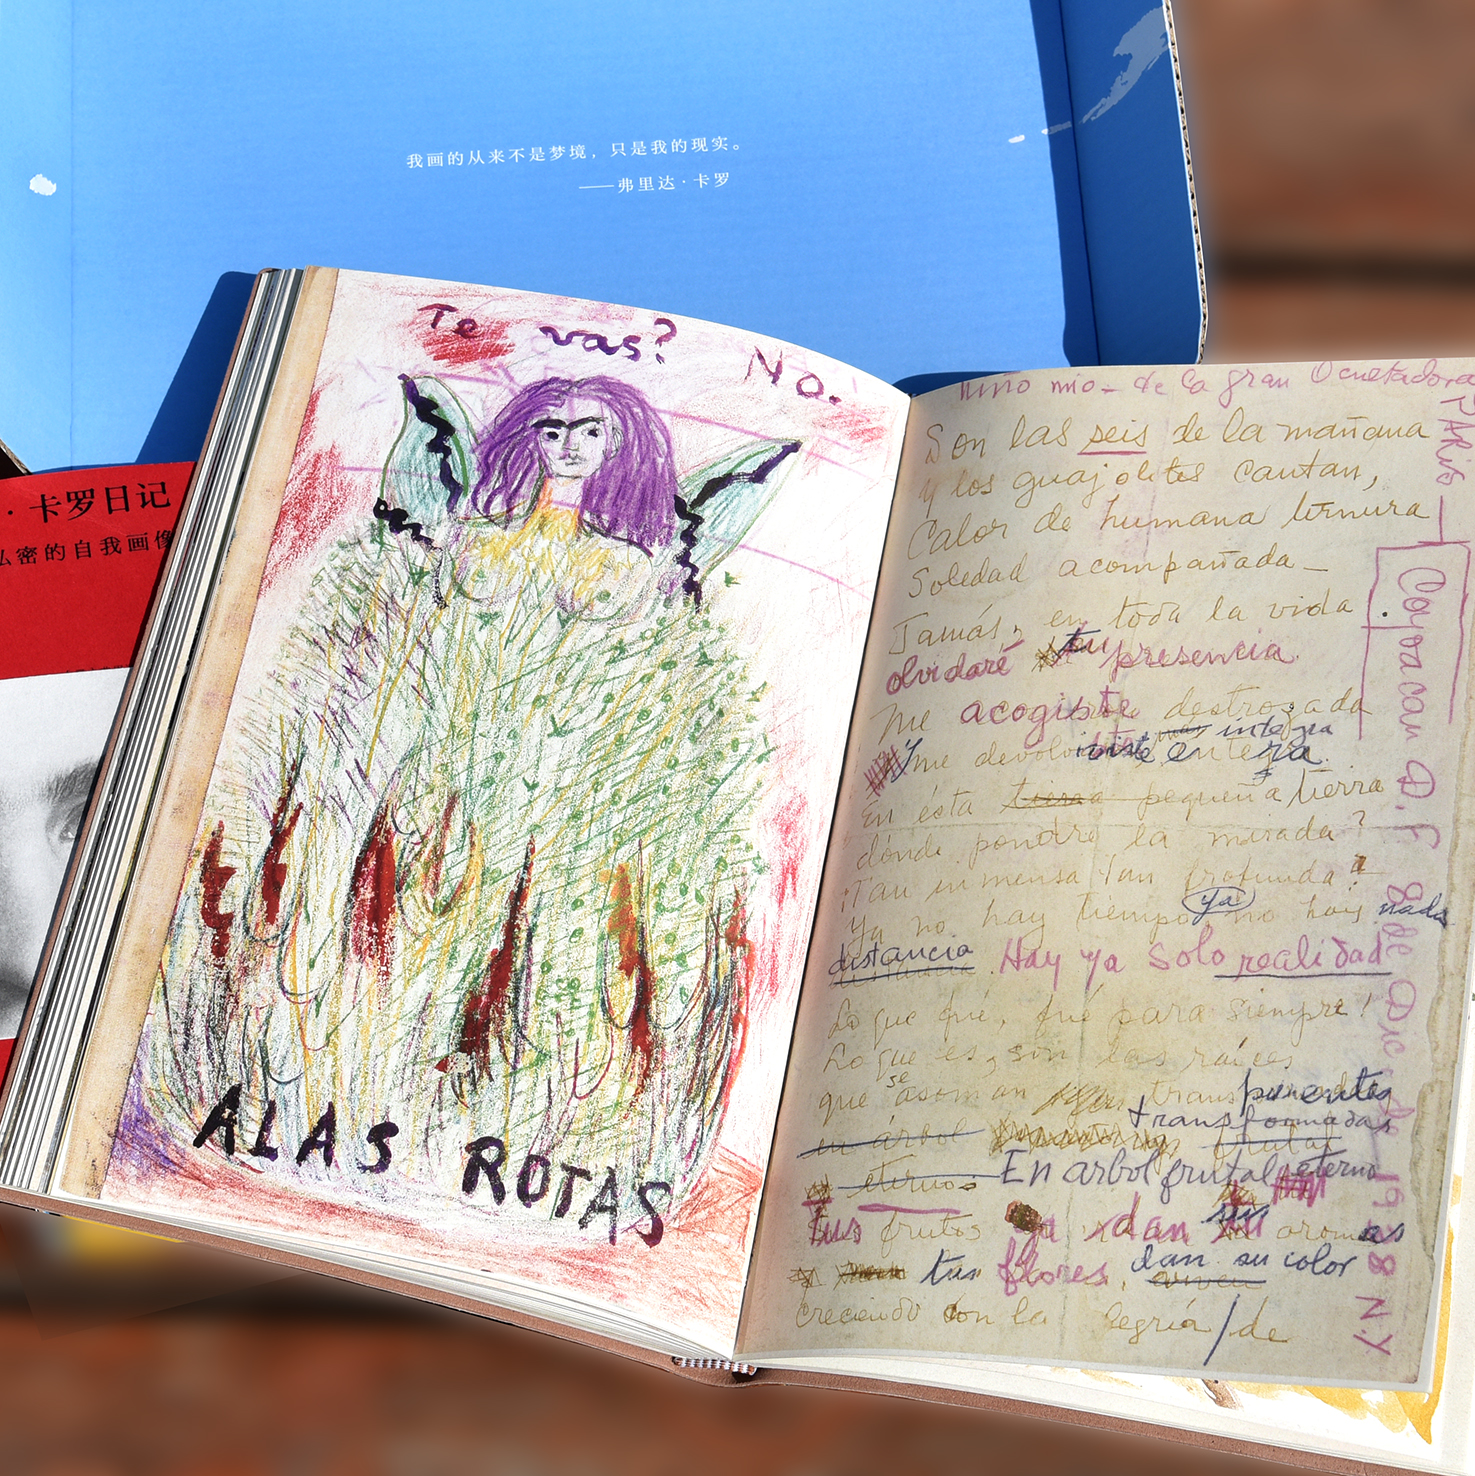 我画的从来不是梦境，只是我的现实。
——弗里达·卡罗
·卡罗日记
私密的自我画像
Te vas? No.
ALAS ROTAS
mio - de la gran Ocultadora
PARIS —
Coyoacan D.F. 8 de Dic de 1938 NY
Son las seis de la mañana
y los guajolotes cantan,
Calor de humana ternura
Soledad acompañada —
Jamás, en toda la vida
olvidaré tu presencia.
Me acogiste destrozada
y me devolviste entera íntegra
En ésta tierra pequeña tierra
dónde pondré la mirada?
¡Tan inmensa tan profunda!
Ya no hay tiempo ya no hay nada
distancia. Hay ya solo realidad
Lo que fué, fué para siempre!
Lo que es, son las raíces
que se asoman transparentes
transformadas
en árbol frutas
y eternos En arbol frutal eterno
Tus frutos ya dan sus aromas
tus flores dan su color
creciendo con la alegría/de